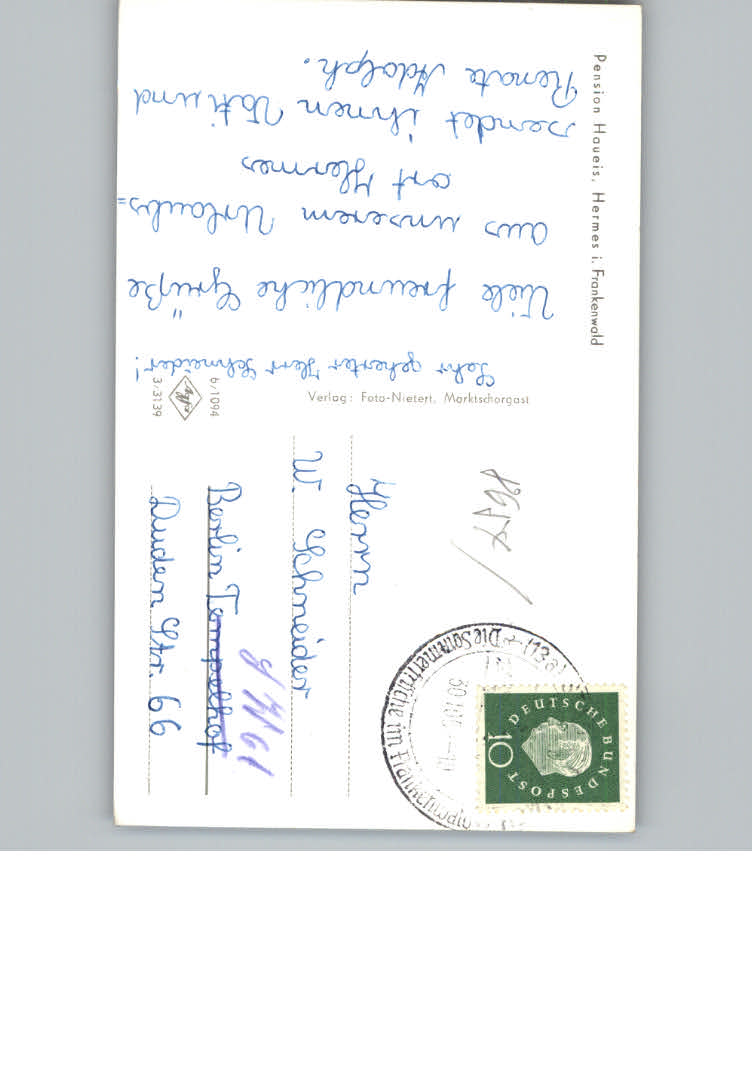 Pension Haueis, Hermes i. Frankenwald
Sehr geherter Herr Schneider!
Viele freundliche Grüße
aus unserem Urlaubs=
ort Hermes
sendet ihnen Vati und
Renate Adolph.
Verlag: Foto-Nietert, Marktschorgast
6/1094
3/3139
Herrn
W. Schneider
Berlin Tempelhof
Duden Str. 66
DEUTSCHE BUNDESPOST
10
(13a)
Die Sommerfrische im Frankenwald